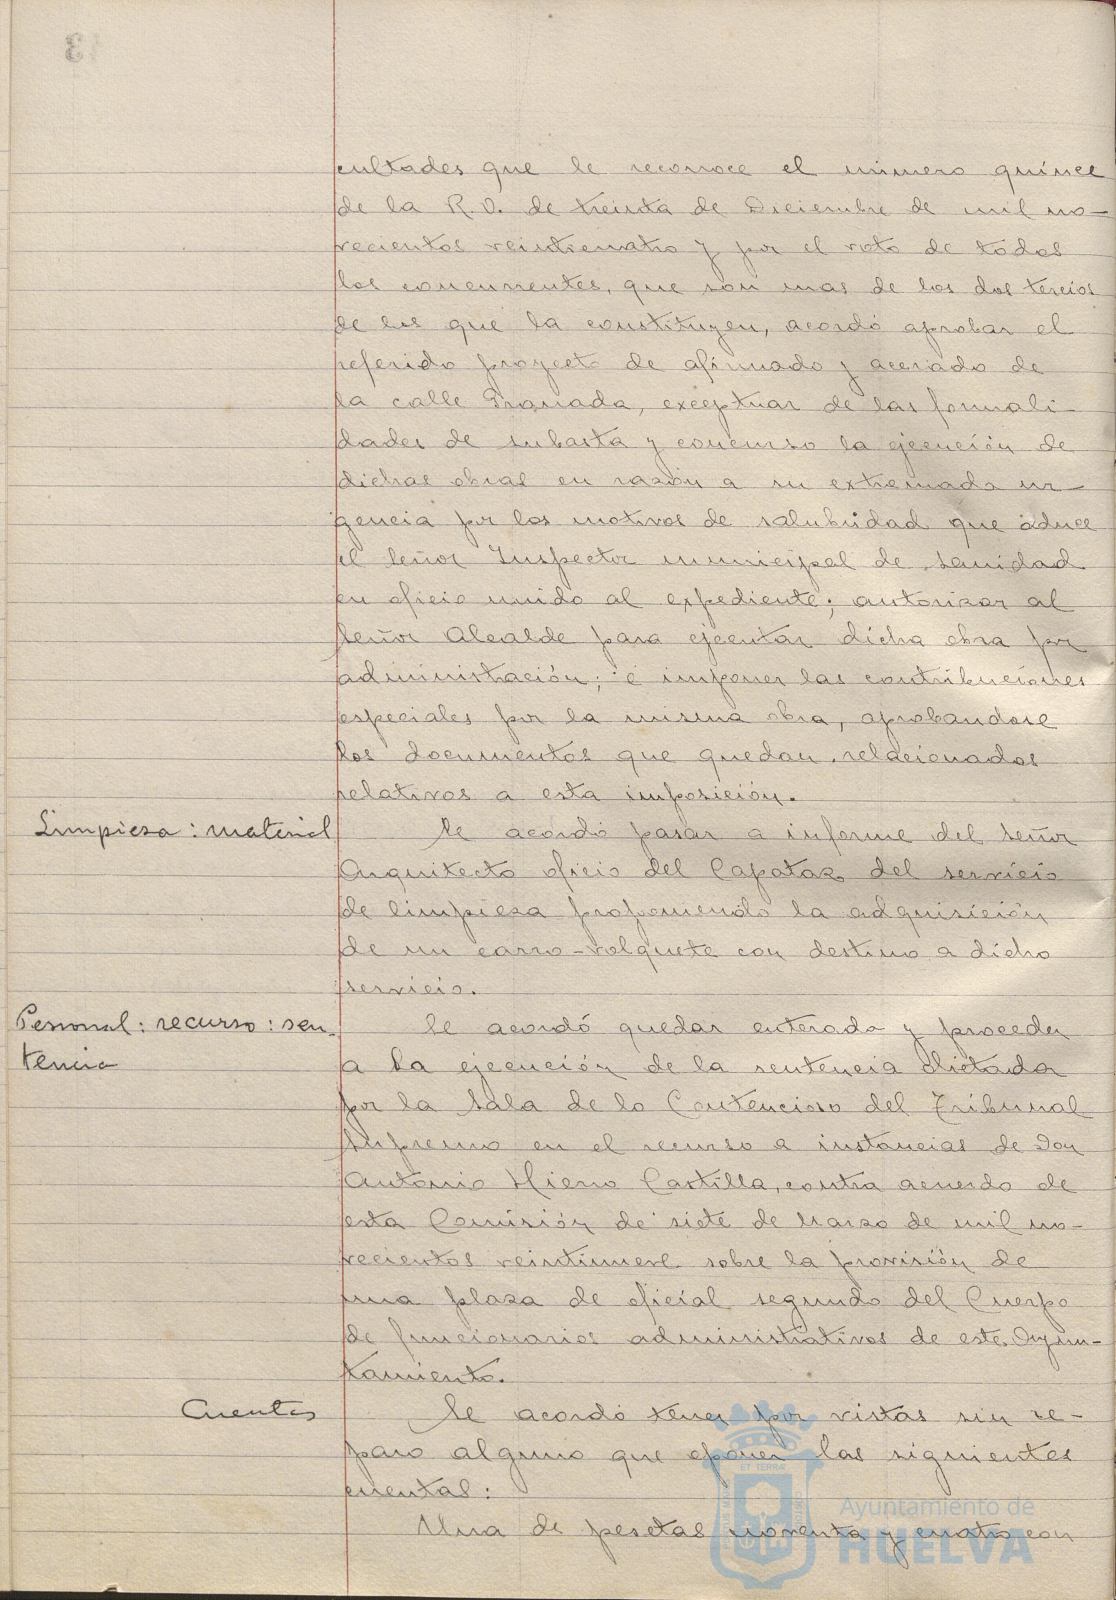 cultades que le reconoce el número quince
de la R.O. de treinta de Diciembre de mil no-
vecientos veinticuatro y por el voto de todos
los concurrentes, que son mas de los dos tercios
de los que la constituyen, acordó aprobar el
referido proyecto de afirmado y acerado de
la calle Granada, exceptuar de las formali-
dades de subasta y concurso la ejecución de
dichas obras en razón a su extremada ur-
gencia por los motivos de salubridad que aduce
el Señor Inspector municipal de sanidad
en oficio unido al expediente; autorizar al
Señor Alcalde para ejecutar dicha obra por
administración; é imponer las contribuciones
especiales por la misma obra, aprobandose
los documentos que quedan relacionados
relativos a esta imposición.
Limpieza: material
Se acordó pasar a informe del Señor
Arquitecto oficio del Capataz del servicio
de limpieza proponiendo la adquisición
de un carro-volquete con destino a dicho
servicio.
Personal: recurso: sen-
tencia
Se acordó quedar enterada y proceder
a la ejecución de la sentencia dictada
por la Sala de lo Contencioso del Tribunal
Supremo en el recurso a instancias de Don
Antonio Hierro Castilla, contra acuerdo de
esta Comisión de siete de Marzo de mil no-
vecientos veintinueve sobre la provisión de
una plaza de oficial segundo del Cuerpo
de funcionarios administrativos de este Ayun-
tamiento.
Cuentas
Se acordó tener por vistas sin re-
paro alguno que oponer las siguientes
cuentas:
Una de pesetas noventa y cuatro con
Ayuntamiento de
HUELVA